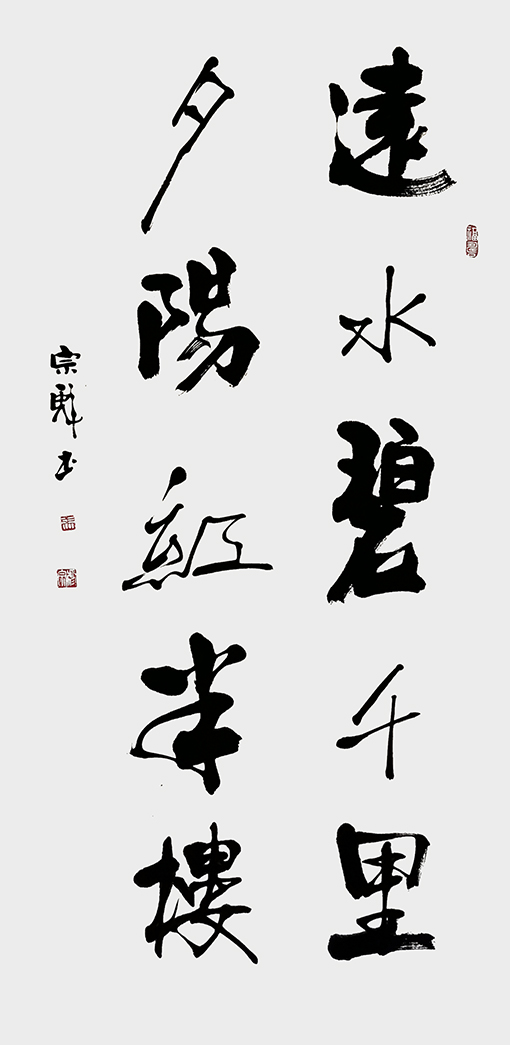 遠水碧千里
夕陽紅半樓
宗